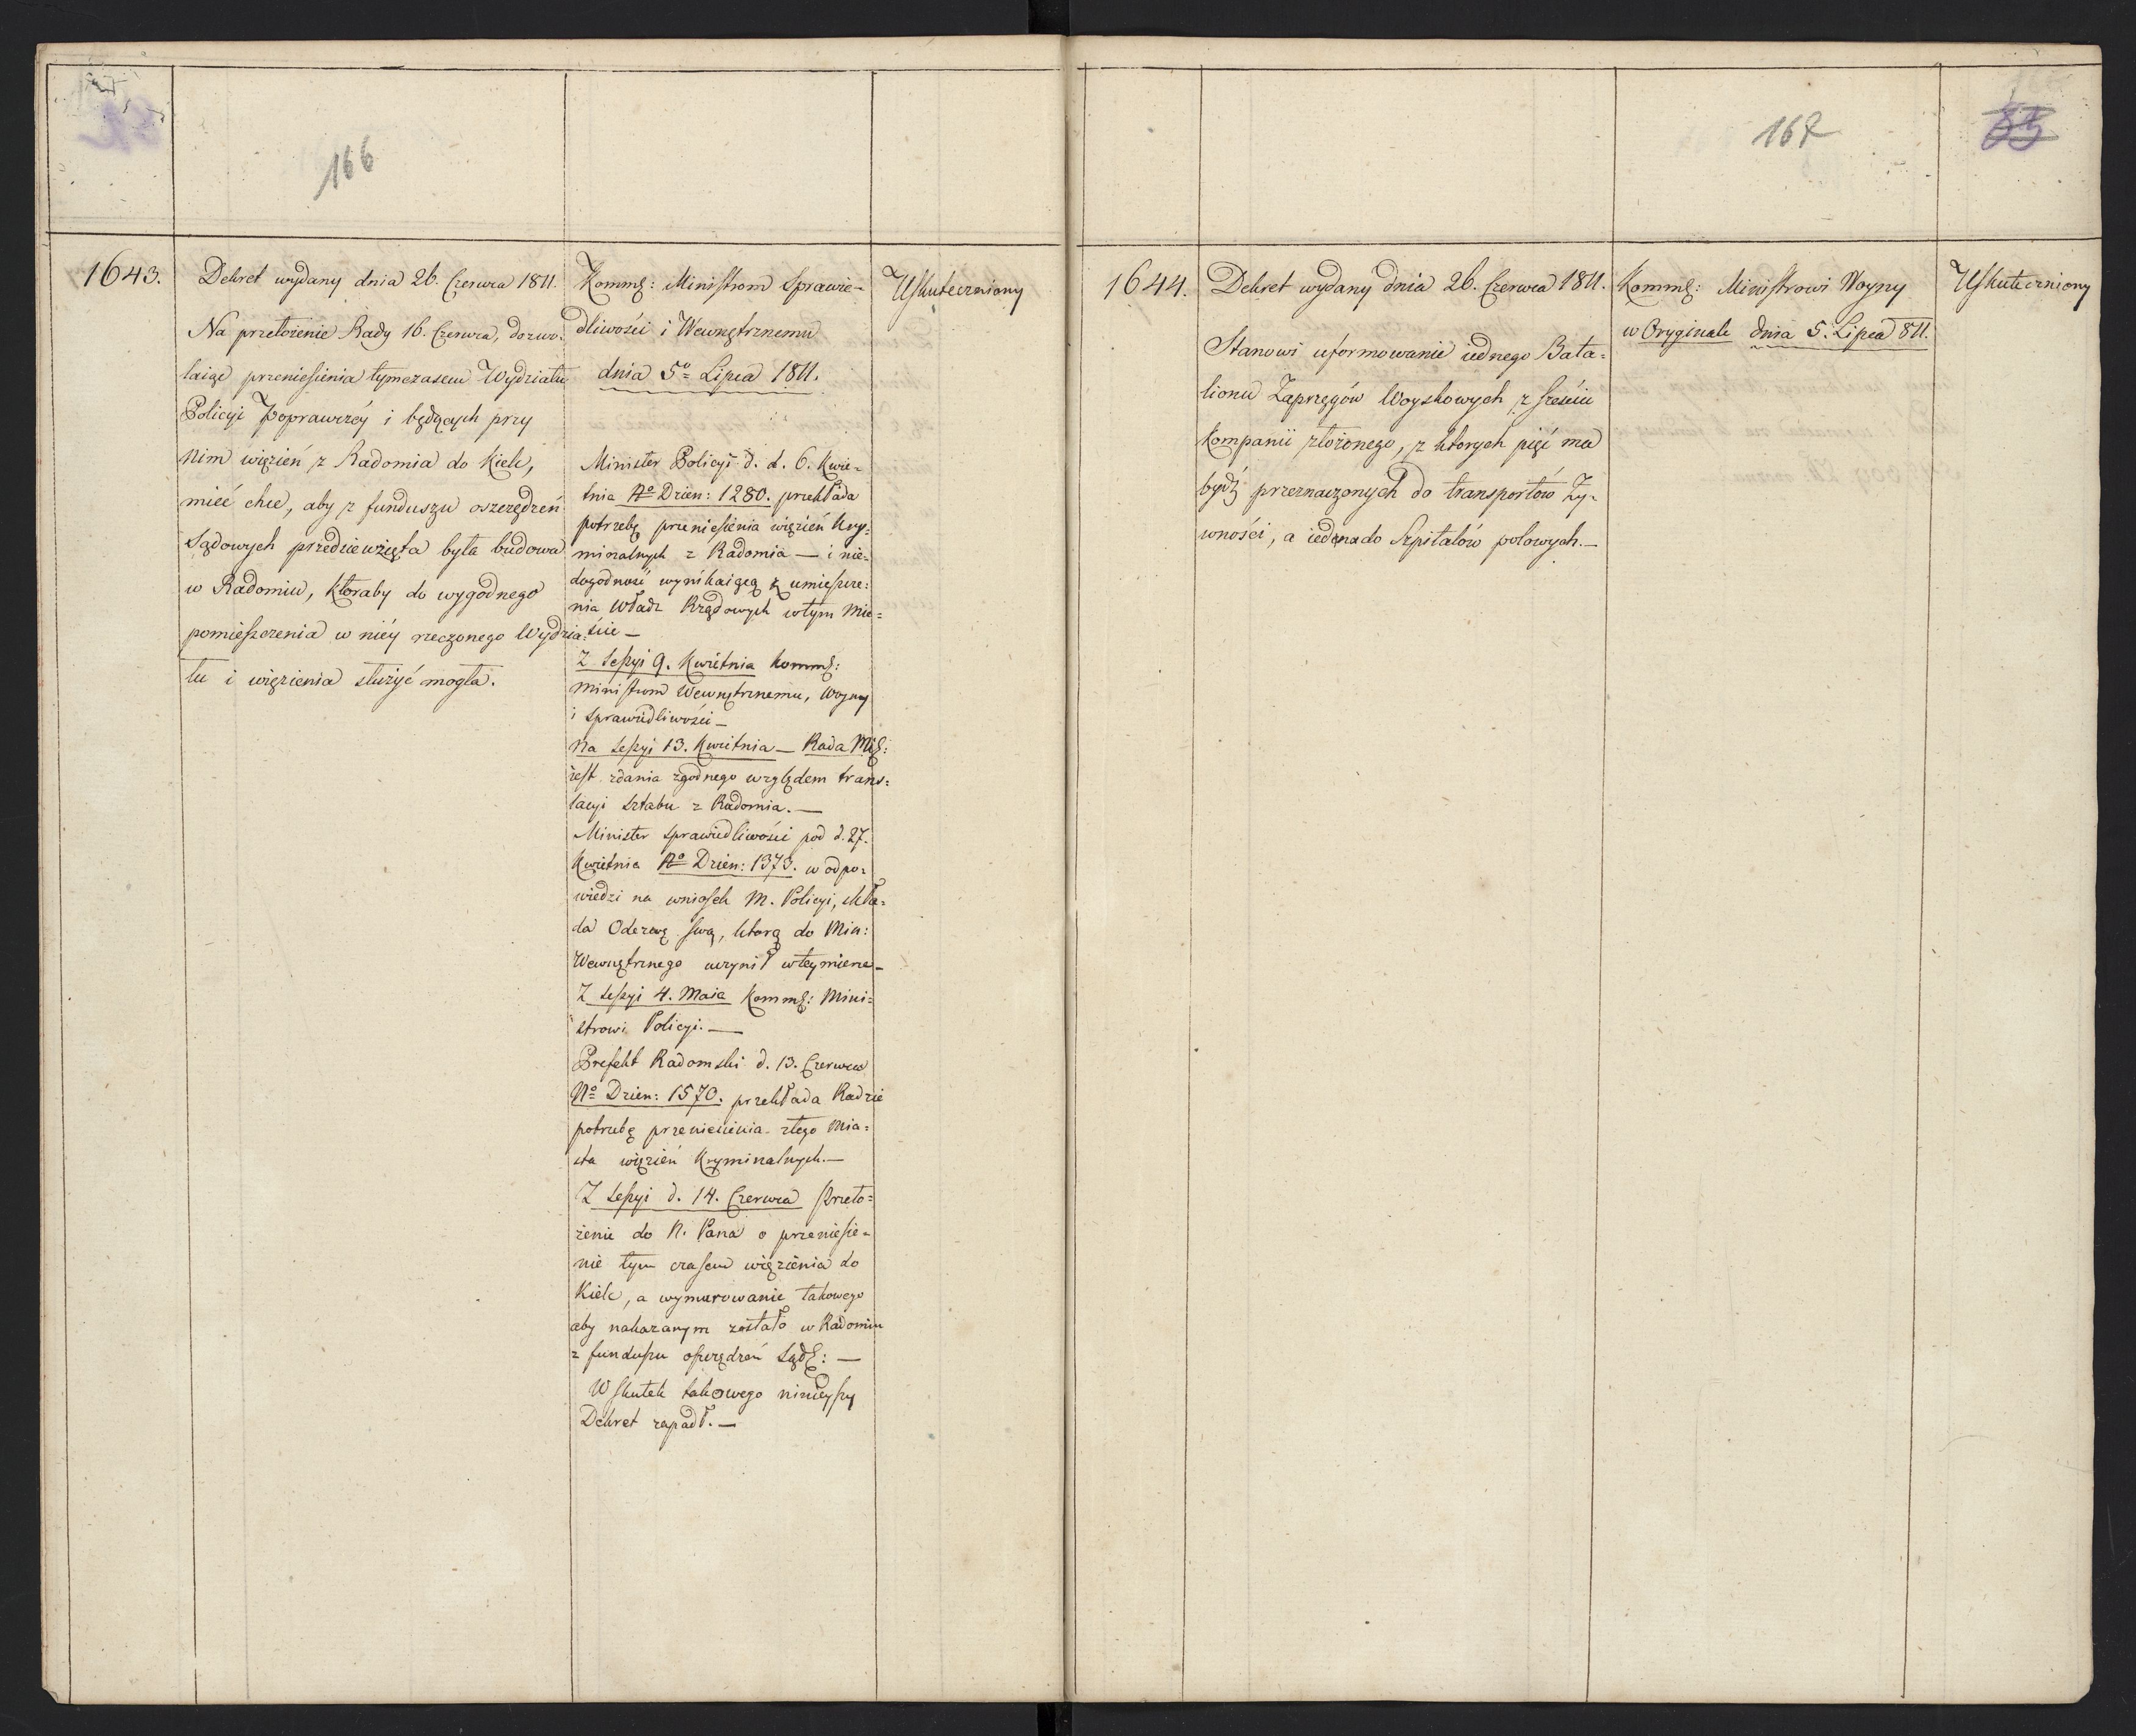 166
1643.
Dekret wydany dnia 26. Czerwca 1811.
Na przełożenie Rady 16. Czerwca, dozwo-
laiąc przeniesienia tymczasem Wydziału
Policyi Poprawczéy i będących przy
nim więzień z Radomia do Kielc,
mieć chce, aby z funduszu oszczędzeń
Sądowych przedziewzięta była budowa
w Radomiu, któraby do wygodnego
pomieszczenia w niéy rzeczonego Wydzia-
łu i więzienia służyć mogła.
Komm: Ministrom Sprawie-
dliwości i Wewnętrznemu
dnia 5º Lipca 1811.
Minister Policyi d. d. 6. Kwie-
tnia Nº Dzien: 1280. przekłada
potrzebę przeniesienia więzień kry-
minalnych z Radomia — i nie-
dogodność wynikaiącą z umieszcze-
nia Władz Rządowych w tym Mie-
ście —
Z Sessyi 9. Kwietnia komm:
Ministrom Wewnętrznemu, Woyny
i Sprawiedliwości —
Na Sessyi 13. Kwietnia — Rada Mi:
iest zdania zgodnego względem trans-
lacyi Sztabu z Radomia. —
Minister Sprawiedliwości pod d. 27.
Kwietnia Nº Dzien: 1373. w odpo-
wiedzi na wniosek M. Policyi, skła-
da Odezwę swą, którą do Min:
Wewnętrznego uczynił w tey mierze —
Z Sessyi 4. Maia Komm: Mini-
strowi Policyi. —
Prefekt Radomski d. 13. Czerwca
Nº Dzien: 1570. przekłada Radzie
potrzebę przeniesienia z tego Mia-
sta więzień Kryminalnych. —
Z Sessyi d. 14. Czerwca Przeło-
żenie do N. Pana o przeniesie-
nie tym czasem więzienia do
Kielc, a wymurowanie takowego
aby nakazanym zostało w Radomiu
z funduszu oszczędzeń Sąd: —
W skutek takowego ninieyszy
Dekret zapadł. —
Uskuteczniony
167
85
1644.
Dekret wydany dnia 26. Czerwca 1811.
Stanowi uformowanie iednego Bata-
lionu Zaprzęgów Woyskowych z sześciu
kompanii złożonego, z ktorych pięć ma
bydź przeznaczonych do transportów Ży-
wności, a iedna do Szpitalów polowych. —
Komm: Ministrowi Woyny
w Oryginale dnia 5. Lipca 811.
Uskuteczniony